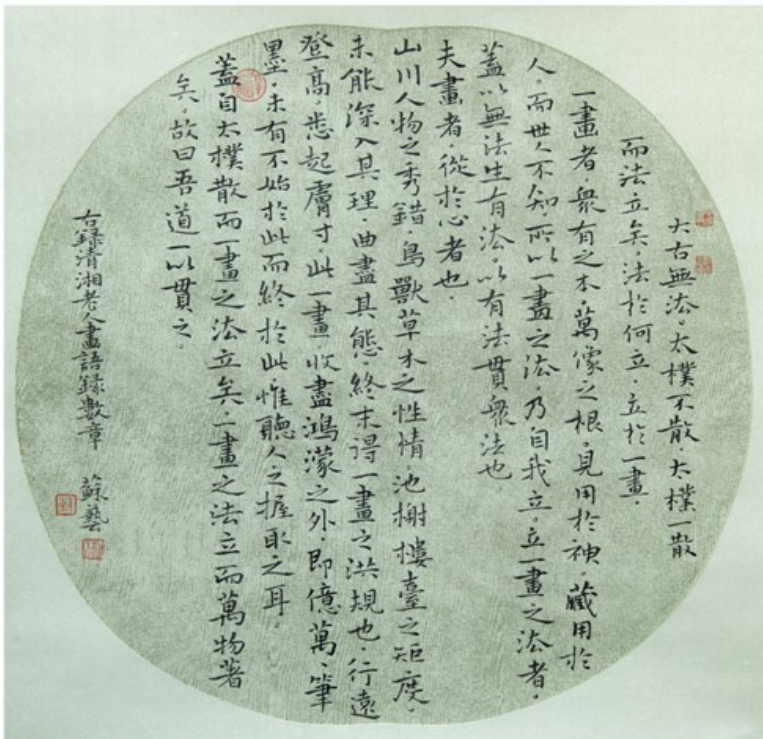 太古無法，太樸不散，太樸一散
而法立矣，法於何立，立於一畫，
一畫者，衆有之本，萬像之根，見用於神，藏用於
人，而世人不知，所以一畫之法，乃自我立，立一畫之法者，
蓋以無法生有法，以有法貫衆法也
夫畫者，從於心者也，
山川人物之秀錯，鳥獸草木之性情，池榭樓臺之矩度，
未能深入其理，曲盡其態，終未得一畫之洪規也，行遠
登高，悉起膚寸，此一畫，收盡鴻濛之外，即億萬、筆
墨，未有不始於此而終於此惟聽人之握取之耳，
蓋自太樸散而一畫之法立矣，一畫之法立而萬物著
矣，故曰吾道一以貫之，
右錄清湘老人畫語錄數章 蘇藝